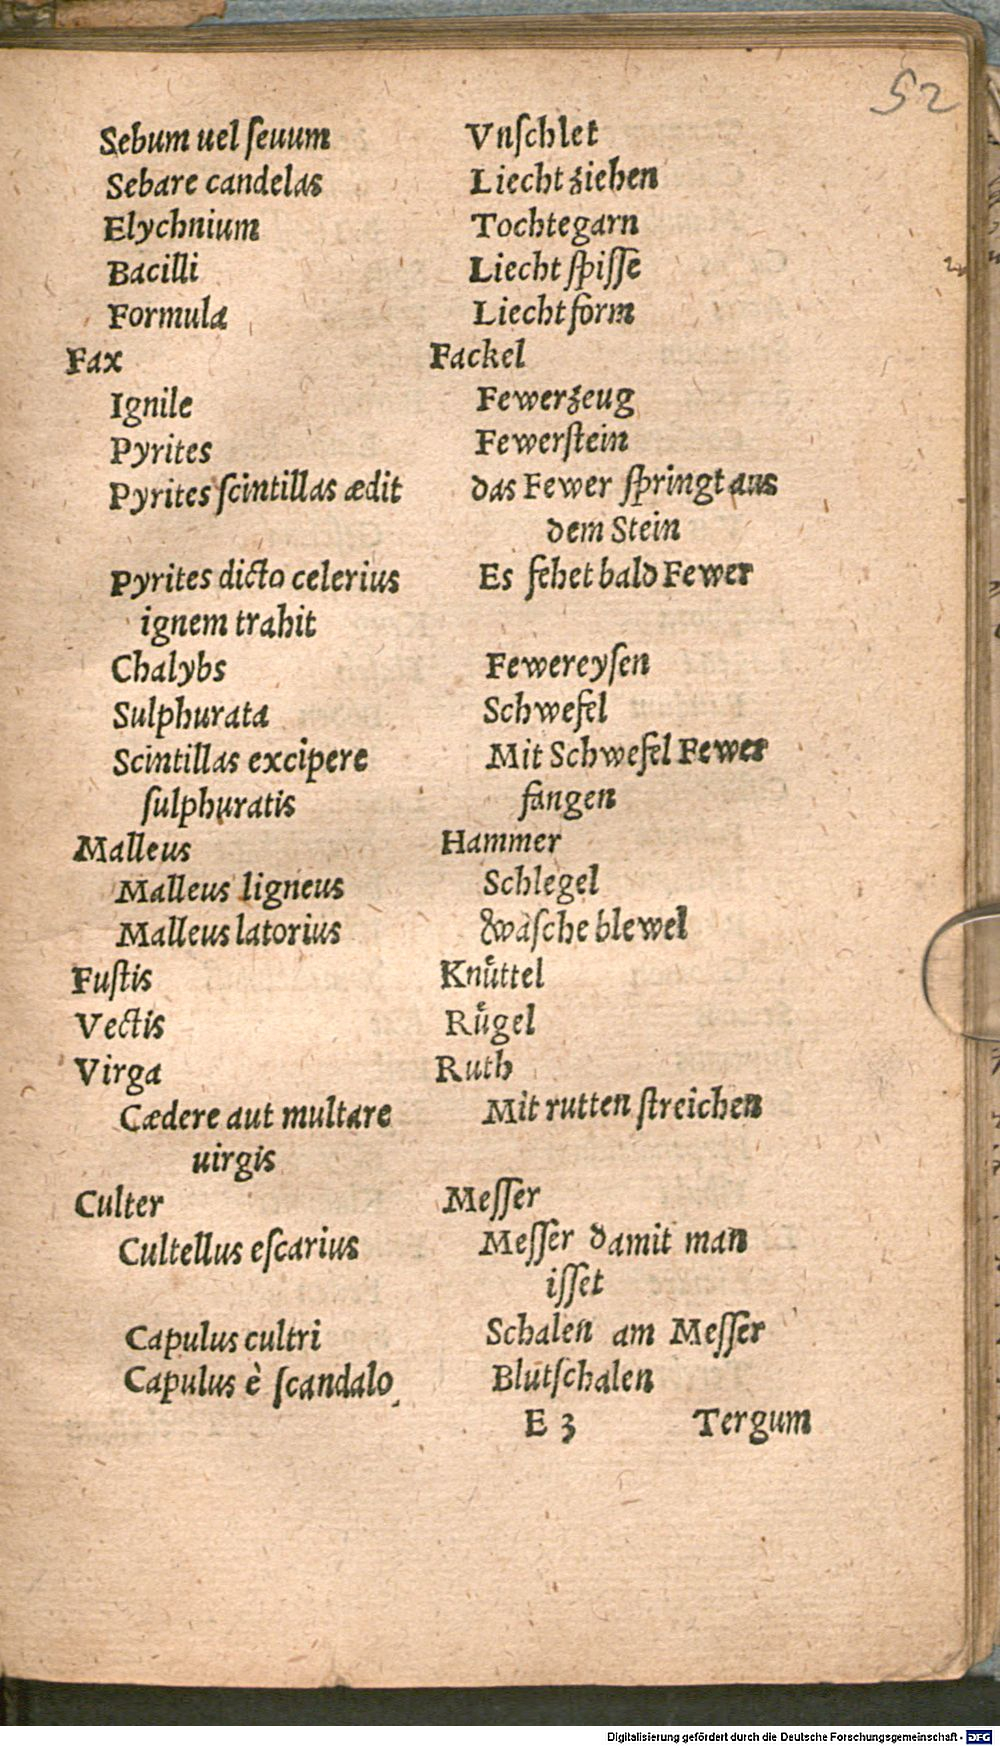 52
Sebum uel ſeuum Vnſchlet
Sebare candelas Liecht ziehen
Elychnium Tochtegarn
Bacilli Liecht ſpiſſe
Formula Liecht form
Fax Fackel
Ignile Fewerzeug
Pyrites Fewerſtein
Pyrites ſcintillas ædit das Fewer ſpringt aus
dem Stein
Pyrites dicto celerius Es fehet bald Fewer
ignem trahit
Chalybs Fewereyſen
Sulphurata Schwefel
Scintillas excipere Mit Schwefel Fewer
ſulphuratis fangen
Malleus Hammer
Malleus ligneus Schlegel
Malleus latorius waͤſche blewel
Fuſtis Knuͤttel
Vectis Ruͤgel
Virga Ruth
Cædere aut multare Mit rutten ſtreichen
uirgis
Culter Meſſer
Cultellus eſcarius Meſſer damit man
iſſet
Capulus cultri Schalen am Meſſer
Capulus è ſcandalo Blutſchalen
E 3 Tergum
Digitalisierung gefördert durch die Deutsche Forschungsgemeinschaft - DFG